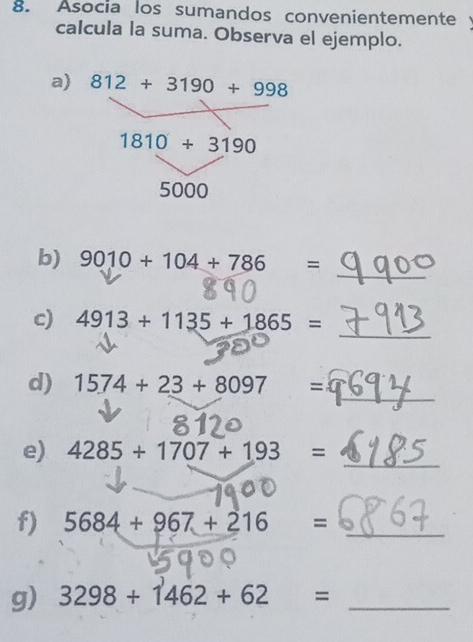 8. Asocia los sumandos convenientemente y
calcula la suma. Observa el ejemplo.
a) 812 + 3190 + 998
1810 + 3190
5000
b) 9010 + 104 + 786 = 9900
890
c) 4913 + 1135 + 1865 = 7913
300
d) 1574 + 23 + 8097 = 9694
8120
e) 4285 + 1707 + 193 = 6185
1900
f) 5684 + 967 + 216 = 6867
5900
g) 3298 + 1462 + 62 = ________